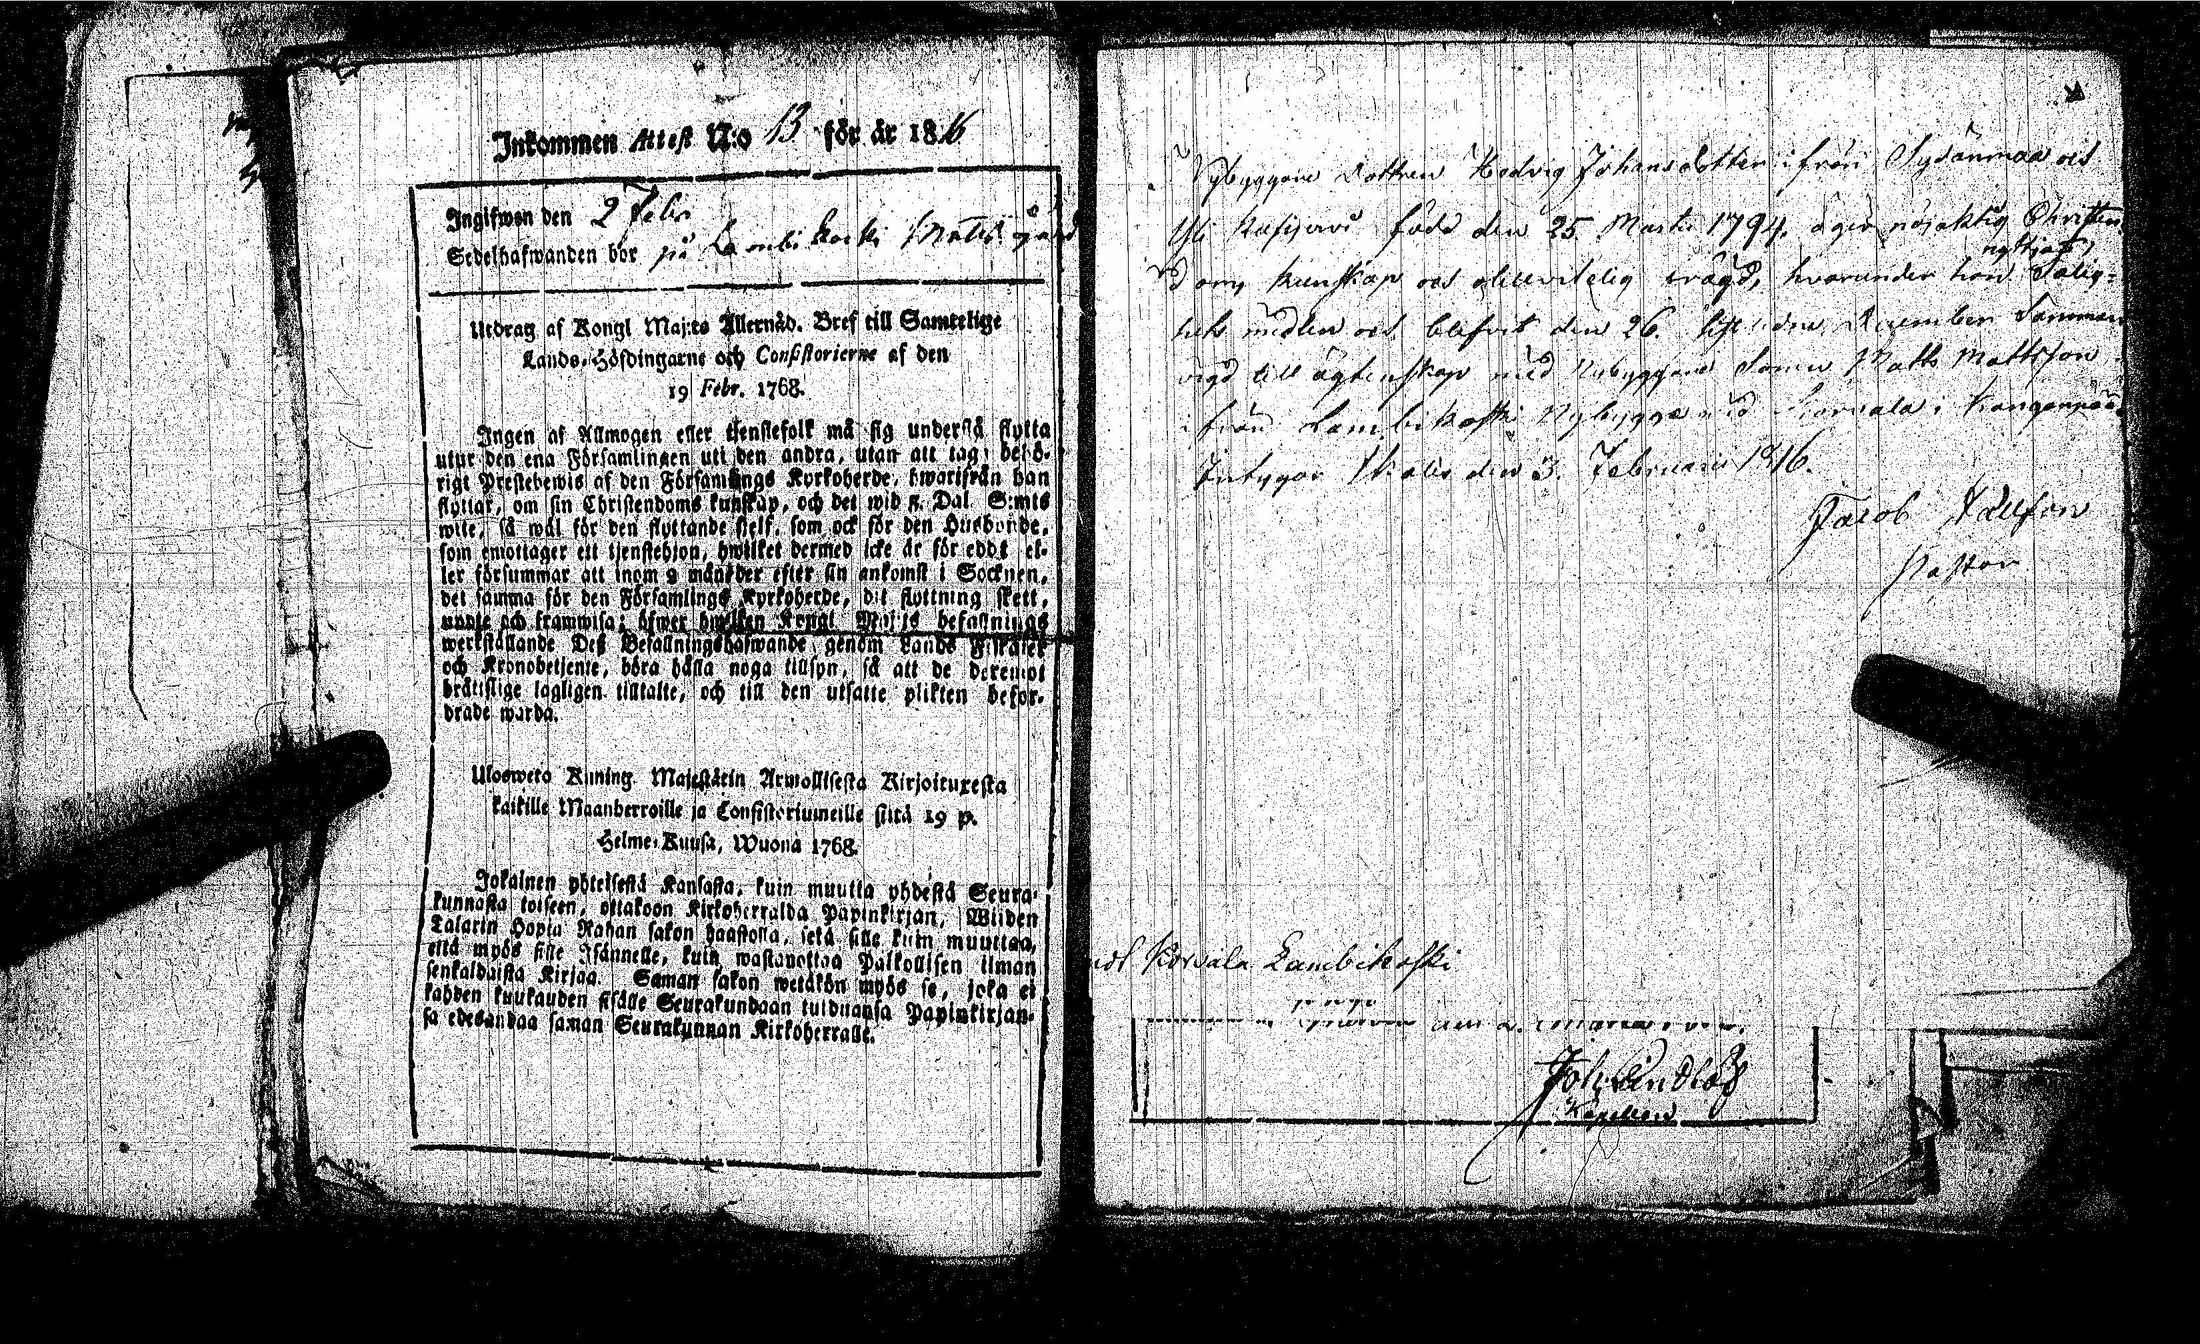 Inkommen Attest N:o 13 för år 1816
Ingifwen den 2 Febr
Sedelhafwanden bor på Lambikoski
Utdrag af Kongl Maj:ts Allernåd. Bref till Samtelige
Lands-Höfdingarne och Consistorierne af den
19 Febr. 1768.
Ingen af Allmogen eller tjenstefolk må sig understå flytta
utur den ena Församlingen uti den andra, utan att taga behö-
rigt Prestebewis af den Församlings Kyrkoherde, hwarifrån han
flyttar, om sin Christendoms kunskap, och det wid 5. Dal. S:mts
wite, så wäl för den flyttande sjelf, som ock för den Husbonde,
som emottager ett tjenstehjon, hwilket dermed icke är försedd el-
ler försummar att inom 2 månader efter sin ankomst i Socknen,
det samma för den Församlings Kyrkoherde, dit flyttning skett,
upte och framwisa; öfwer hwilken Kongl Maj:ts befallnings
werkställande Deß Befallningshafwande genom Lands Fiskaler
och Kronobetjente, böra hålla noga tillsyn, så att de deremot
brätslige lagligen tilltalte, och till den utsatte plikten befor-
drade warda.
Ulosweto Kuning. Majestätin Armollisesta Kirjoituxesta
kaikille Maanherroille ja Consistoriumeille siitä 19 p.
Helme-Kuusa, Wuona 1768.
Jokainen yhteisestä Kansasta, kuin muutta yhdestä Seura-
kunnasta toiseen, ottakoon Kirkoherralda Papinkirjan, Wiiden
Talarin Hopia Rahan sakon haastolla, sekä sille kuin muuttaa,
että myös sille Isännelle, kuin wastaanottaa Palkollisen ilman
senkaldaista Kirjaa. Saman sakon wetäkön myös se, joka ei
kahden kuukauden sisälle Seurakundaan tulduansa Papinkirjan-
sa edesandaa saman Seurakunnan Kirkoherralle.
Nybyggare Dottren Hedvig Johansdotter ifrån Sydänmaa vid
född den 25 Martii 1794, äger nöjaktig Christen
doms kunskap och oförvitelig frägd, hvarunder hon nyttjat Salig-
hets medlen och blifvit den 26. sistledne December Samman
vigd till ägtenskap med Nybyggare Sonen Matts Mattsson
ifrån Lambikoski Nybygge vid Korvala i Kangasniemi
Intygar den 3. Februarii 1816.
Jacob
Pastor
Korvala Lambikoski
Joh. Lindlöf
Kapellan